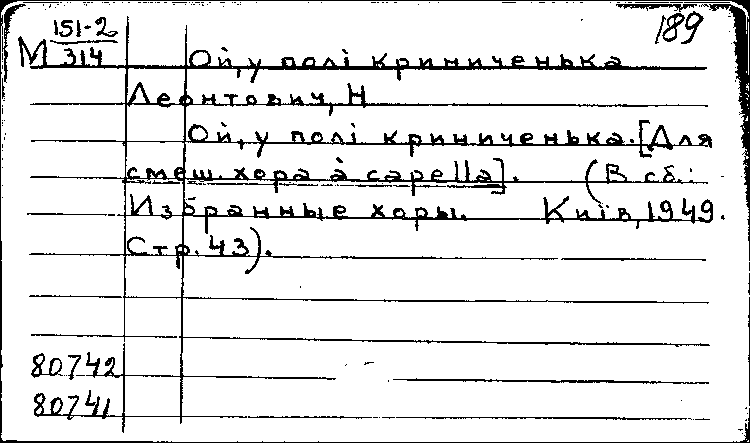 189
М 151-2
314
Ой, у полі криниченька
Леонтович, Н
Ой, у полі криниченька. [Для
смеш. хора à capella]. (В сб.:
Избранные хоры. Київ, 1949.
Стр. 43).
80742
80741